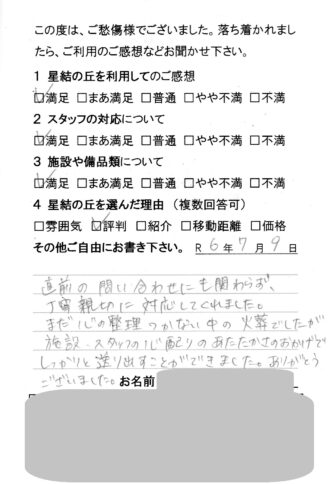 この度は、ご愁傷様でございました。落ち着かれまし
たら、ご利用のご感想などお聞かせ下さい。
1 星結の丘を利用してのご感想
☑満足 □まあ満足 □普通 □やや不満 □不満
2 スタッフの対応について
☑満足 □まあ満足 □普通 □やや不満 □不満
3 施設や備品類について
☑満足 □まあ満足 □普通 □やや不満 □不満
4 星結の丘を選んだ理由 (複数回答可)
□雰囲気 ☑評判 □紹介 □移動距離 □価格
その他ご自由にお書き下さい。 R 6年7月9日
直前の問い合わせにも関わらず、
丁寧親切に対応してくれました。
まだ心の整理つかない中の火葬でしたが
施設・スタッフの心配りのあたたかさのおかげで
しっかりと送り出すことができました。ありがとう
ございました。 お名前